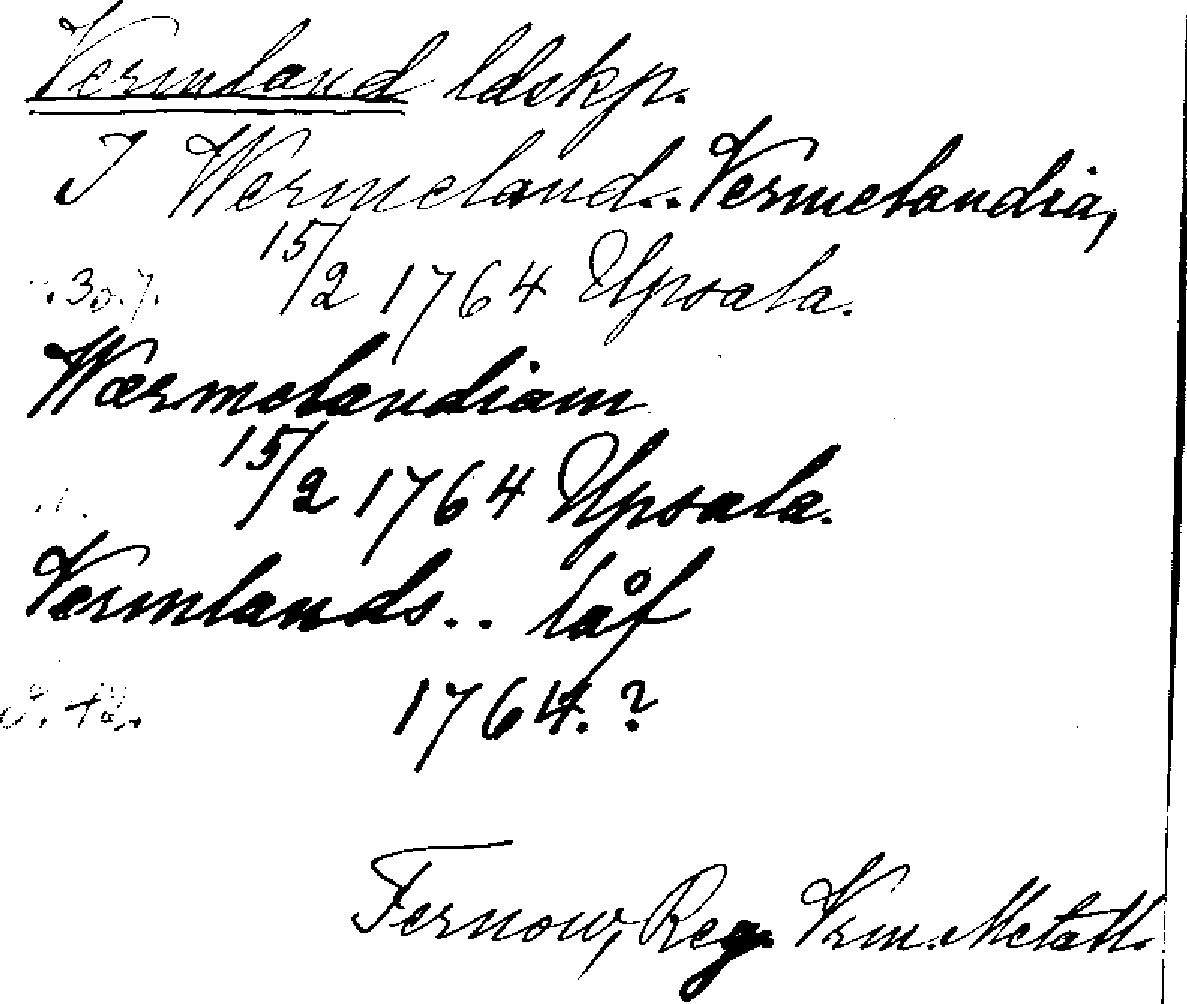 Vermland ldskp.
I Wermeland.. Vermelandia,
15/2 1764 Upsala.
Wærmelandiam
15/2 1764 Upsala.
Vermlands.. låf
1764.?
Fernow, Reg. Vrm. Metall.